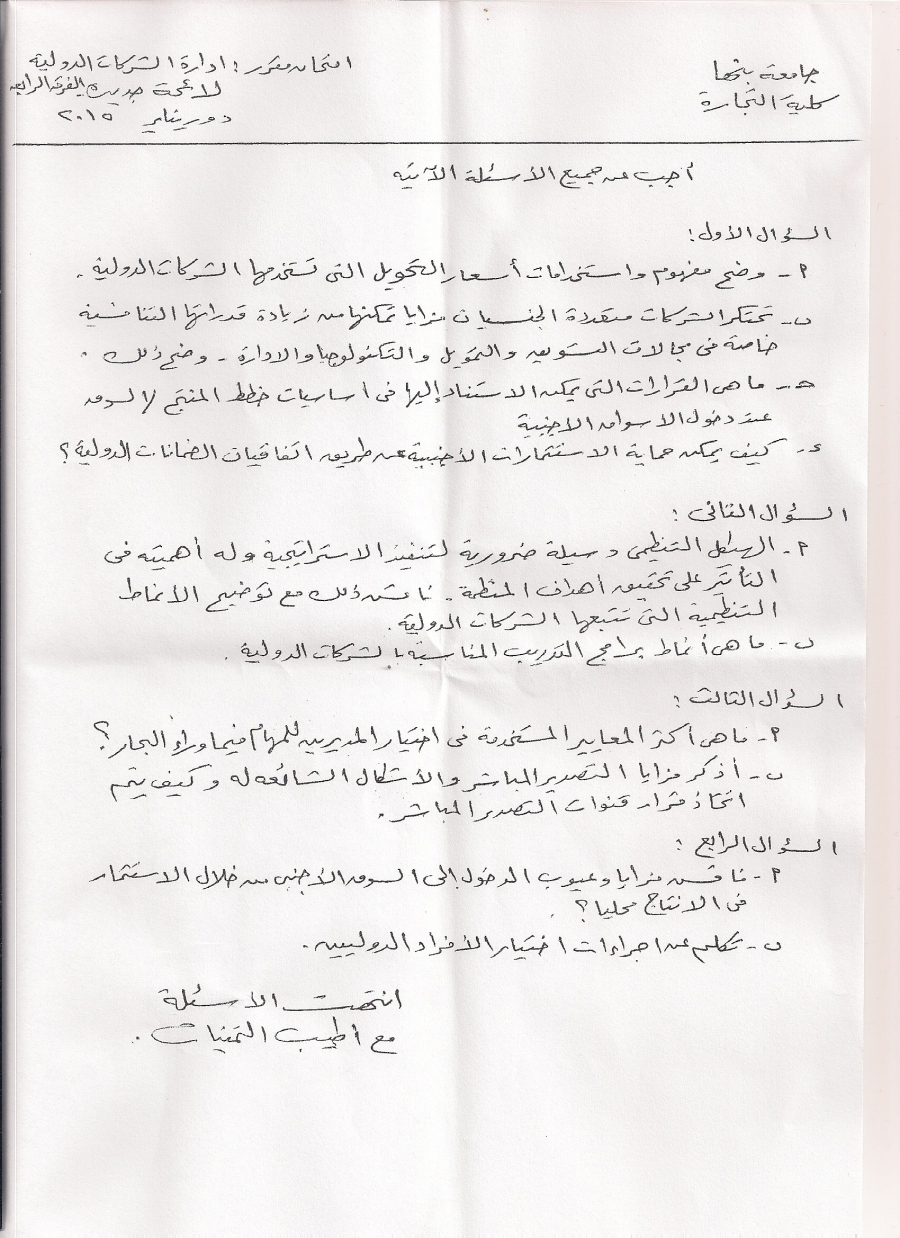 جامعة بنها
كلية التجارة
امتحان مقرر : ادارة الشركات الدولية
لائحة جديدة الفرقة الرابعة
دور يناير ٢٠١٥
أجب عن جميع الأسئلة الآتية
السؤال الأول :
٢ - وضح مفهوم واستخدامات أسعار التحويل التى تستخدمها الشركات الدولية .
ب - تحتكر الشركات متعددة الجنسيات مزايا تمكنها من زيادة قدراتها التنافسية
خاصة فى مجالات التسويق والتمويل والتكنولوجيا والادارة - وضح ذلك .
حـ - ما هى القرارات التى يمكن الاستناد إليها فى أساسيات خطط المنتج / السوق
عند دخول الاسواق الاجنبية
د - كيف يمكن حماية الاستثمارات الأجنبية عن طريق اتفاقيات الضمانات الدولية ؟
السؤال الثانى :
٢ - الهيكل التنظيمى وسيلة ضرورية لتنفيذ الاستراتيجية وله أهميته فى
التأثير على تحقيق أهداف المنظمة . ناقش ذلك مع توضيح الانماط
التنظيمية التى تتبعها الشركات الدولية .
ب - ما هى أنماط برامج التدريب المناسبة بالشركات الدولية .
السؤال الثالث :
٢ - ما هى أكثر المعايير المستخدمة فى اختيار المديرين للمهام فيما وراء البحار ؟
ب - أذكر مزايا التصدير المباشر والأشكال الشائعه له وكيف يتم
اتخاذ قرار قنوات التصدير المباشر .
السؤال الرابع :
٢ - ناقش مزايا وعيوب الدخول إلى السوق الأجنبى من خلال الاستثمار
فى الانتاج محليا ؟
ب - تكلم عن اجراءات اختيار الأفراد الدوليين .
انتهت الأسئلة
مع أطيب التمنيات .